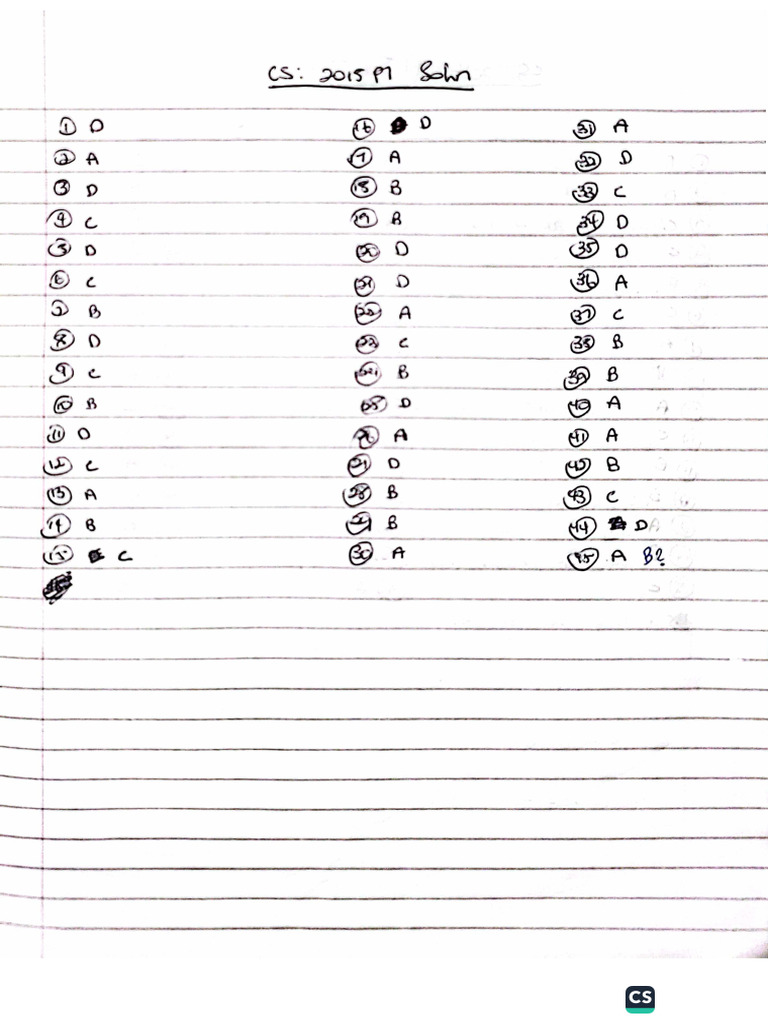 CS: 2015 P1 Soln
① D
② A
③ D
④ C
⑤ D
⑥ C
⑦ B
⑧ D
⑨ C
⑩ B
⑪ D
⑫ C
⑬ A
⑭ B
⑮ C
⑯ D
⑰ A
⑱ B
⑲ B
⑳ D
㉑ D
㉒ A
㉓ C
㉔ B
㉕ D
㉖ A
㉗ D
㉘ B
㉙ B
㉚ A
㉛ A
㉜ D
㉝ C
㉞ D
㉟ D
㊱ A
㊲ C
㊳ B
㊴ B
㊵ A
㊶ A
㊷ B
㊸ C
㊹ D
㊺ A B?
CS